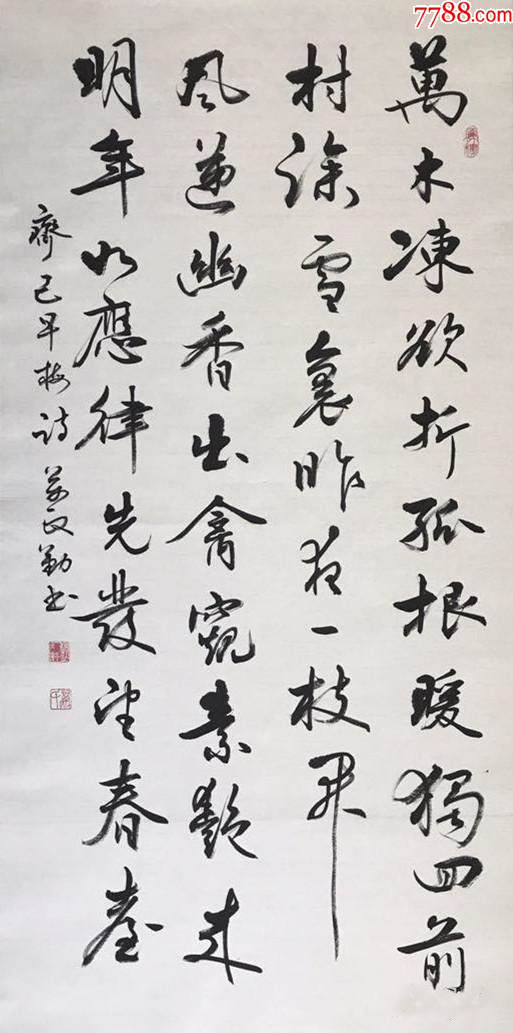 7788.com
萬木凍欲折孤根暖獨回前
村深雪裏昨夜一枝開
風遞幽香出禽窺素艷來
明年如應律先發望春臺
齊己早梅詩 勤書